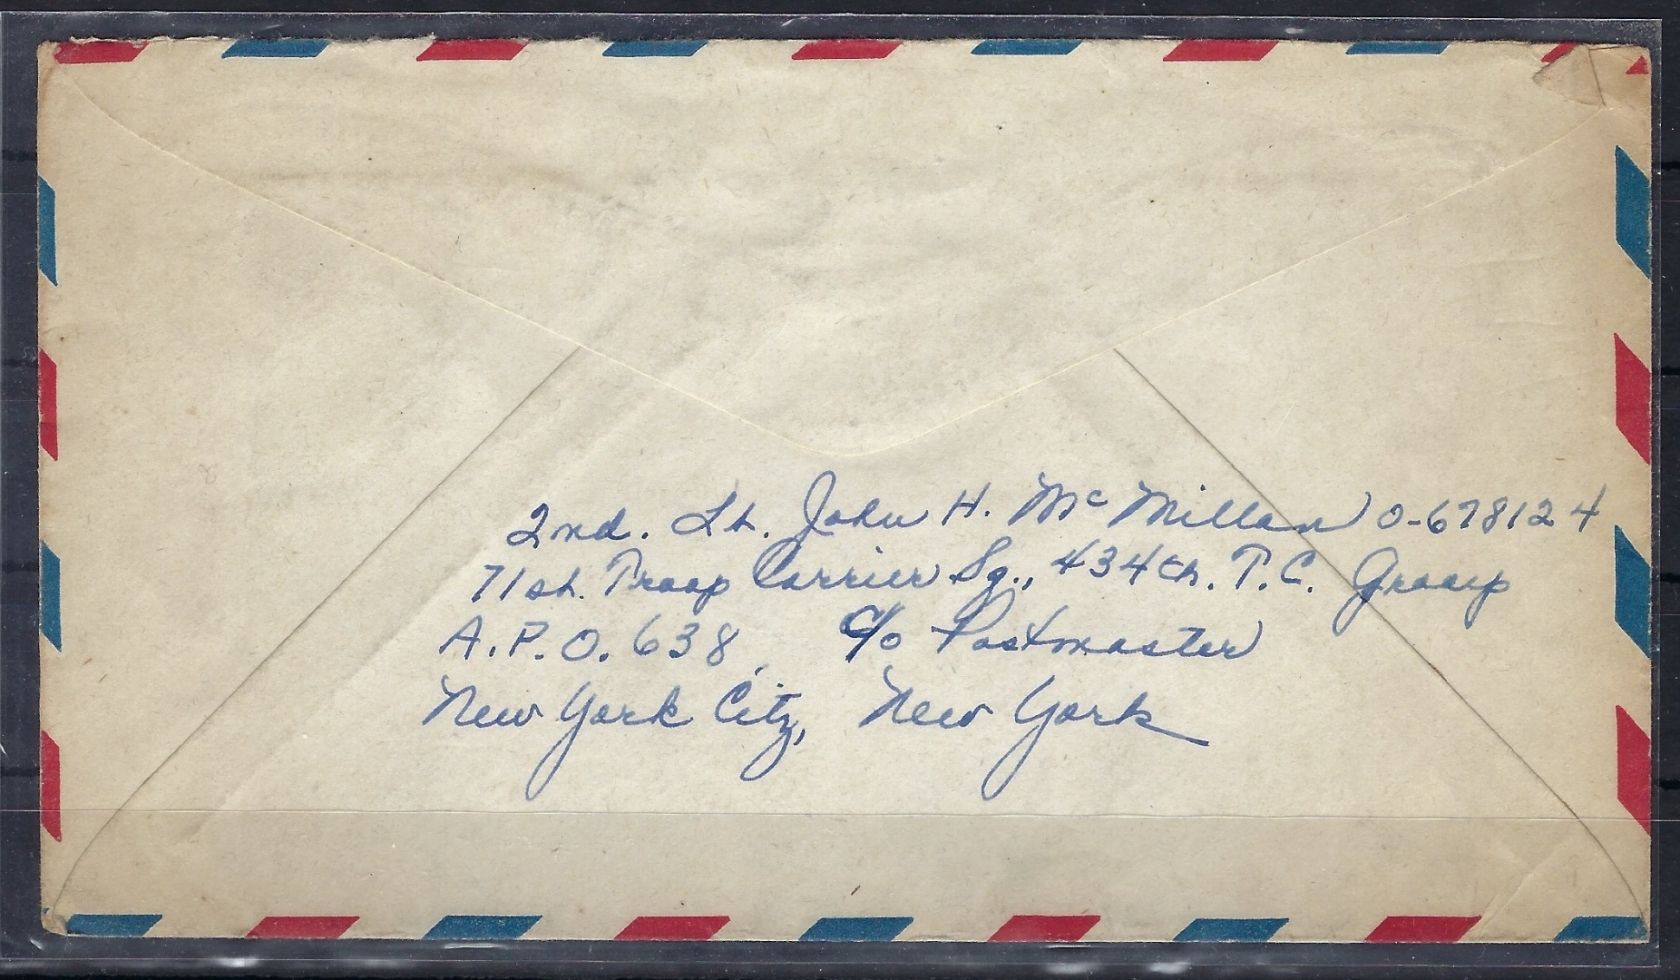 2nd. Lt. John H. McMillan O-678124
71st. Troop Carrier Sq., 434th. T.C. Group
A.P.O. 638, c/o Postmaster
New York City, New York